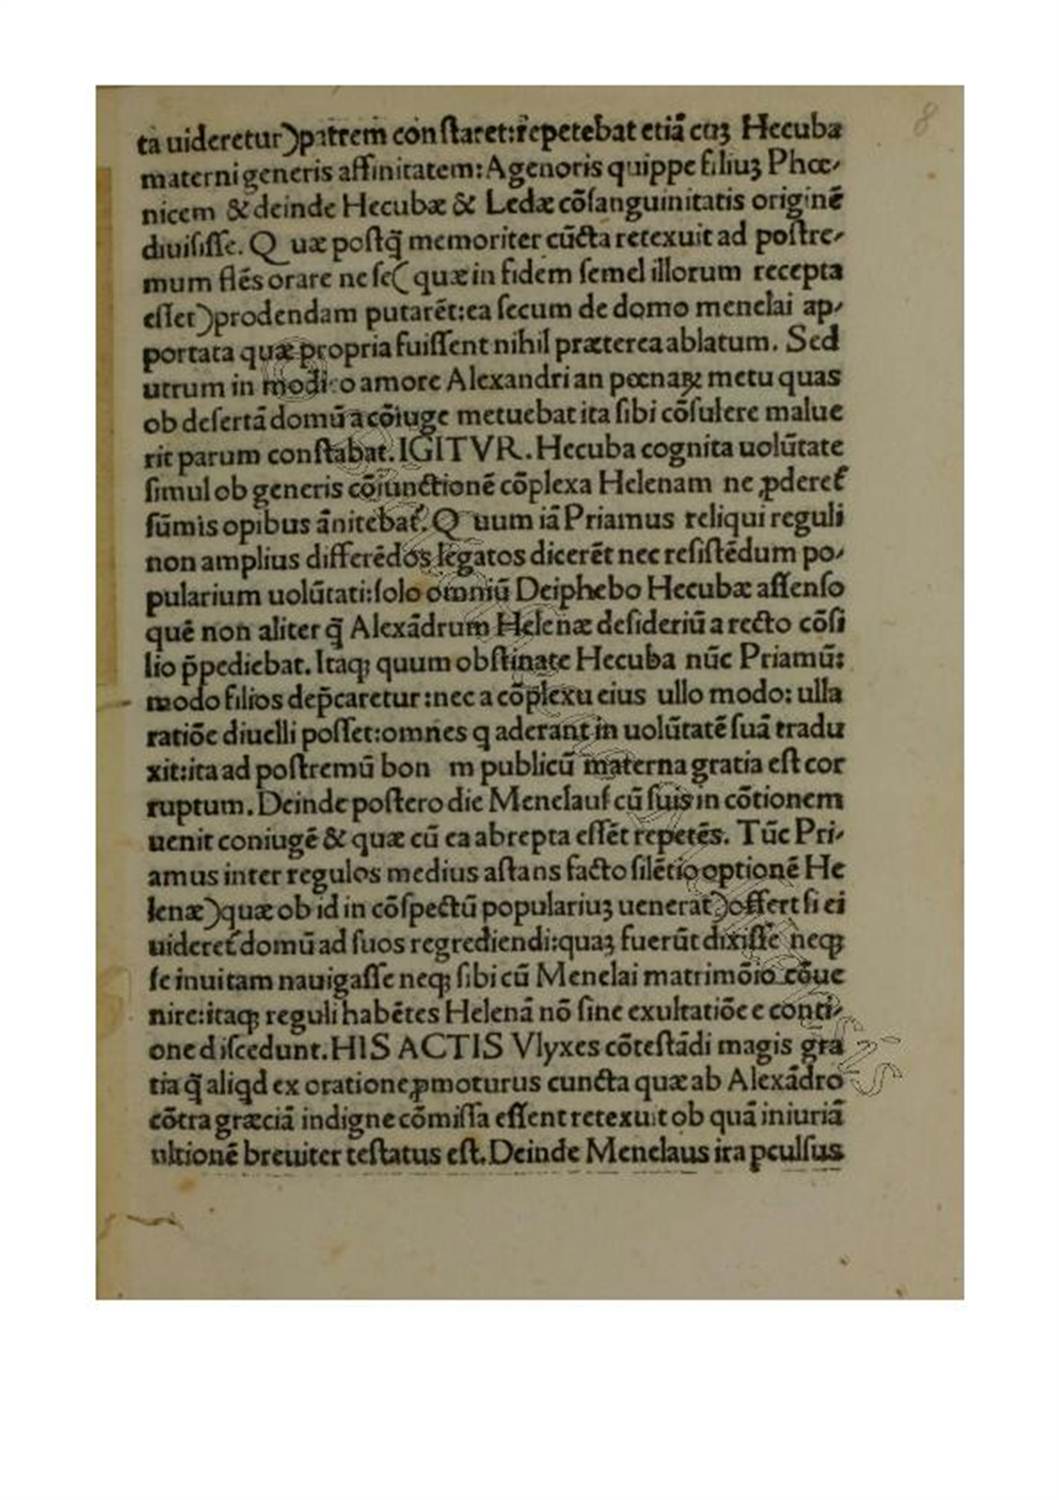 ta uideretur)patrem conſtaret:repetebat etiā cuꝫ Hecuba
materni generis affinitatem:Agenoris quippe filiuꝫ Phœ-
nicem & deinde Hecubæ & Ledæ cōſanguinitatis originē
diuiſiſſe. Q uæ poſtq̄ memoriter cūcta retexuit ad poſtre-
mum flēs orare ne ſe( quæ in fidem ſemel illorum recepta
eſſet)prodendam putarēt:ea ſecum de domo menelai ap-
portata quæ propria fuiſſent nihil præterea ablatum. Sed
utrum in modico amore Alexandri an pœnaꝝ metu quas
ob deſertā domū a cōiuge metuebat ita ſibi cōſulere malue
rit parum conſtabat. IGITVR. Hecuba cognita uolūtate
ſimul ob generis cōiunctionē cōplexa Helenam ne ꝓderet᷑
ſūmis opibus ānitebat᷑. Q uum iā Priamus reliqui reguli
non amplius differēdos legatos dicerēt nec reſiſtēdum po-
pularium uolūtati:ſolo omniū Deiphebo Hecubæ aſſenſo
quē non aliter q̄ Alexādrum Helenæ deſideriū a recto cōſi
lio p̄pediebat. Itaqꝫ quum obſtinate Hecuba nūc Priamū:
modo filios dep̄caretur:nec a cōplexu eius ullo modo: ulla
ratiōe diuelli poſſet:omnes q aderant in uolūtatē ſuā tradu
xit:ita ad poſtremū bon m publicū materna gratia eſt cor
ruptum. Deinde poſtero die Menelauſ cū ſuis in cōtionem
uenit coniugē & quæ cū ea abrepta eſſēt repetēs. Tūc Pri-
amus inter regulos medius aſtans facto ſilētio optionē He
lenæ)quæ ob id in cōſpectū populariuꝫ uenerat)offert ſi ei
uideret᷑ domū ad ſuos regrediendi:quaꝫ fuerūt dixiſſe neqꝫ
ſe inuitam nauigaſſe neqꝫ ſibi cū Menelai matrimōio cōue
nire:itaqꝫ reguli habētes Helenā nō ſine exultatiōe e conti-
one diſcedunt. HIS ACTIS Vlyxes cōteſtādi magis gra
tia q̄ aliqd ex oratione ꝓmoturus cuncta quæ ab Alexādro
cōtra græciā indigne cōmiſſa eſſent retexuit ob quā iniuriā
ultionē breuiter teſtatus eſt. Deinde Menelaus ira pculſus
8